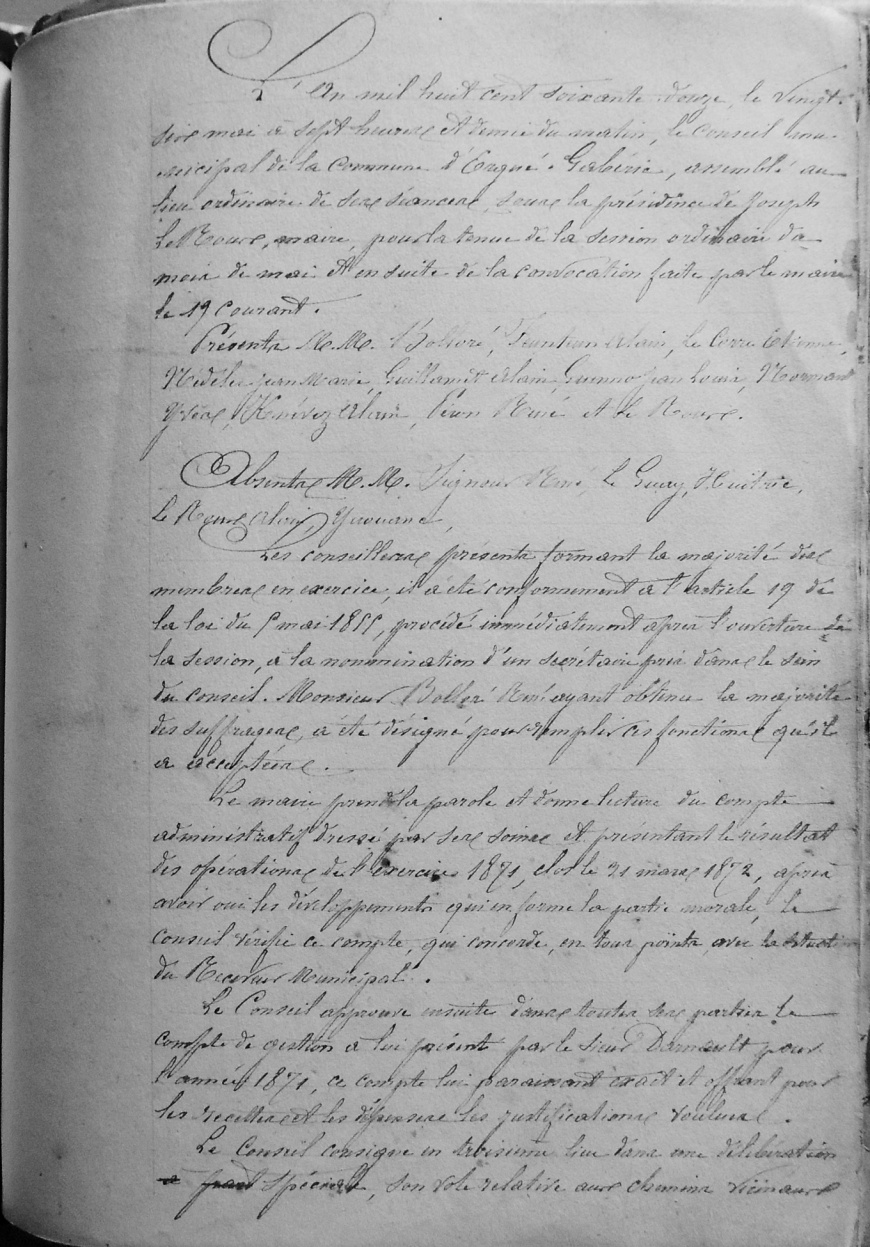 L'An mil huit cent soixante douze, le vingt-
six mai à sept heures et demie du matin, le conseil mu-
nicipal de la commune d'Ergué-Gabéric, assemblé au
lieu ordinaire de ses séances, sous la présidence de Joseph
Le Roux, maire, pour la tenue de la session ordinaire du
mois de mai et en suite de la convocation faite par le maire
le 19 courant.
Présents M.M. Bolloré, Feunteun Alain, Le Corre Etienne,
Nédélec Jean Marie, Guillamet Alain, Guenno Jean Louis, Normant
Yves, Knévez Alain, Péron René et Le Roux.
Absents M.M. Signour René, Le Guay, Huitric,
Le Roux Alain,
Les conseillers présents formant la majorité des
membres en exercice, il a été conformement à l'article 19 de
la loi du 5 mai 1855, procédé immédiatement après l'ouverture de
la session, à la nommination d'un secrétaire pris dans le sein
du conseil. Monsieur Bolloré René ayant obtenu la majorité
des suffrages, a été désigné pour remplir ces fonctions qu'il
a acceptées.
Le maire prend la parole et donne lecture du compte
administratif dressé par ses soins et présentant le résultat
des opérations de l'exercice 1871, clos le 31 mars 1872, après
avoir oui les développements qui en forme la partie morale, le
Conseil vérifie ce compte, qui concorde, en tous points avec
du Receveur Municipal.
Le Conseil approuve ensuite dans toutes ses parties le
compte de gestion à lui présenté par le sieur Darnault pour
l'année 1871, ce compte lui paraissant exact et offrant pour
les recettes et les dépenses les justifications voulues.
Le Conseil consigne en troisième lieu dans une délibération
à part spéciale, son vote relative aux chemins vicinaux